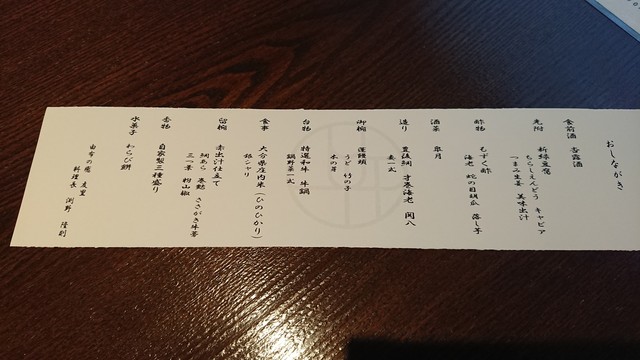 おしながき
食前酒 香露酒
先附 新緑豆腐
ちらしえんどう キャビア
つまみ生姜 美味出汁
酢物 もずく酢
海老 蛇の目胡瓜 落し芋
酒菜 皐月
造り 豊後鯛 才巻海老 間八
妻一式
御椀 蓮饅頭
うど 竹の子
木の芽
台物 特選和牛 牛鍋
鍋野菜一式
食事 大分県庄内米(ひのひかり)
銀シャリ
留椀 赤出汁仕立て
鯛あら 巻麩 ささがき牛蒡
三つ葉 粉山椒
香物 自家製三種盛り
水菓子 わらび餅
由布の郷 夏里
料理長 渕野 隆則